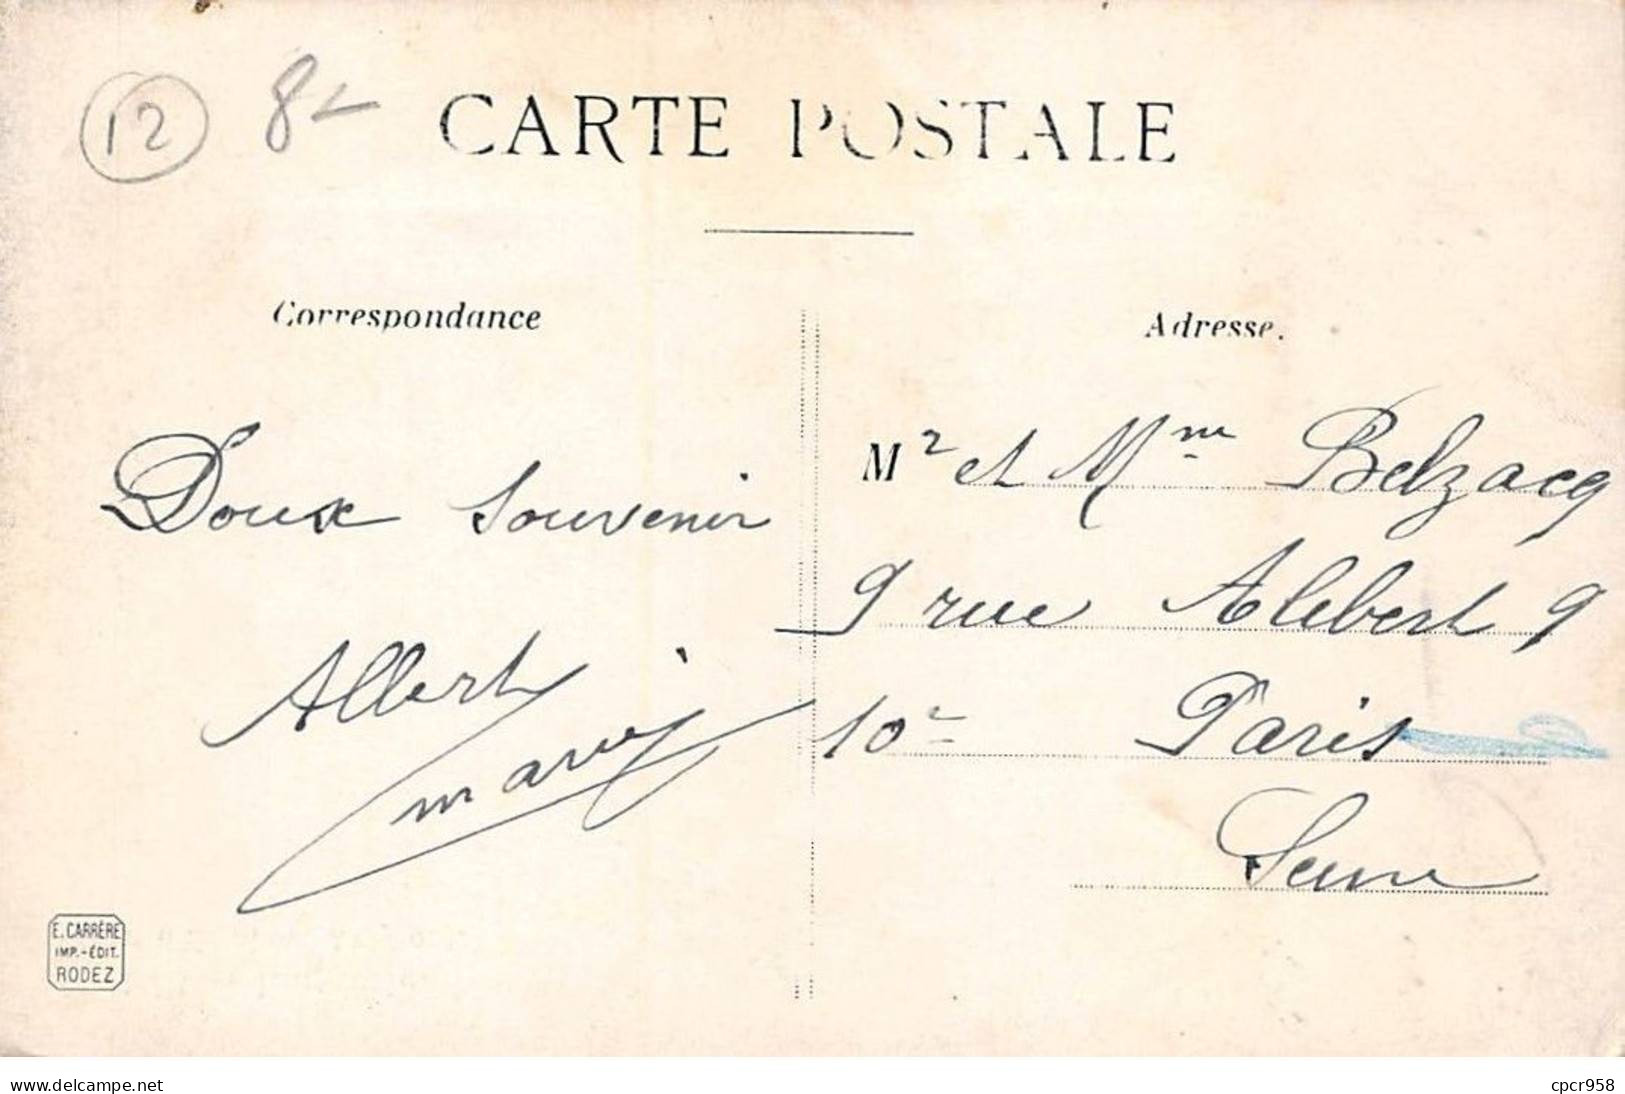 12 8-
CARTE POSTALE
Correspondance
Doux souvenir
Albert
E. CARRÈRE
IMP.-ÉDIT.
RODEZ
Adresse.
Mr et Mme Belzacq
9 rue Alibert 9
10e Paris
Seine
www.delcampe.net
cpcr958